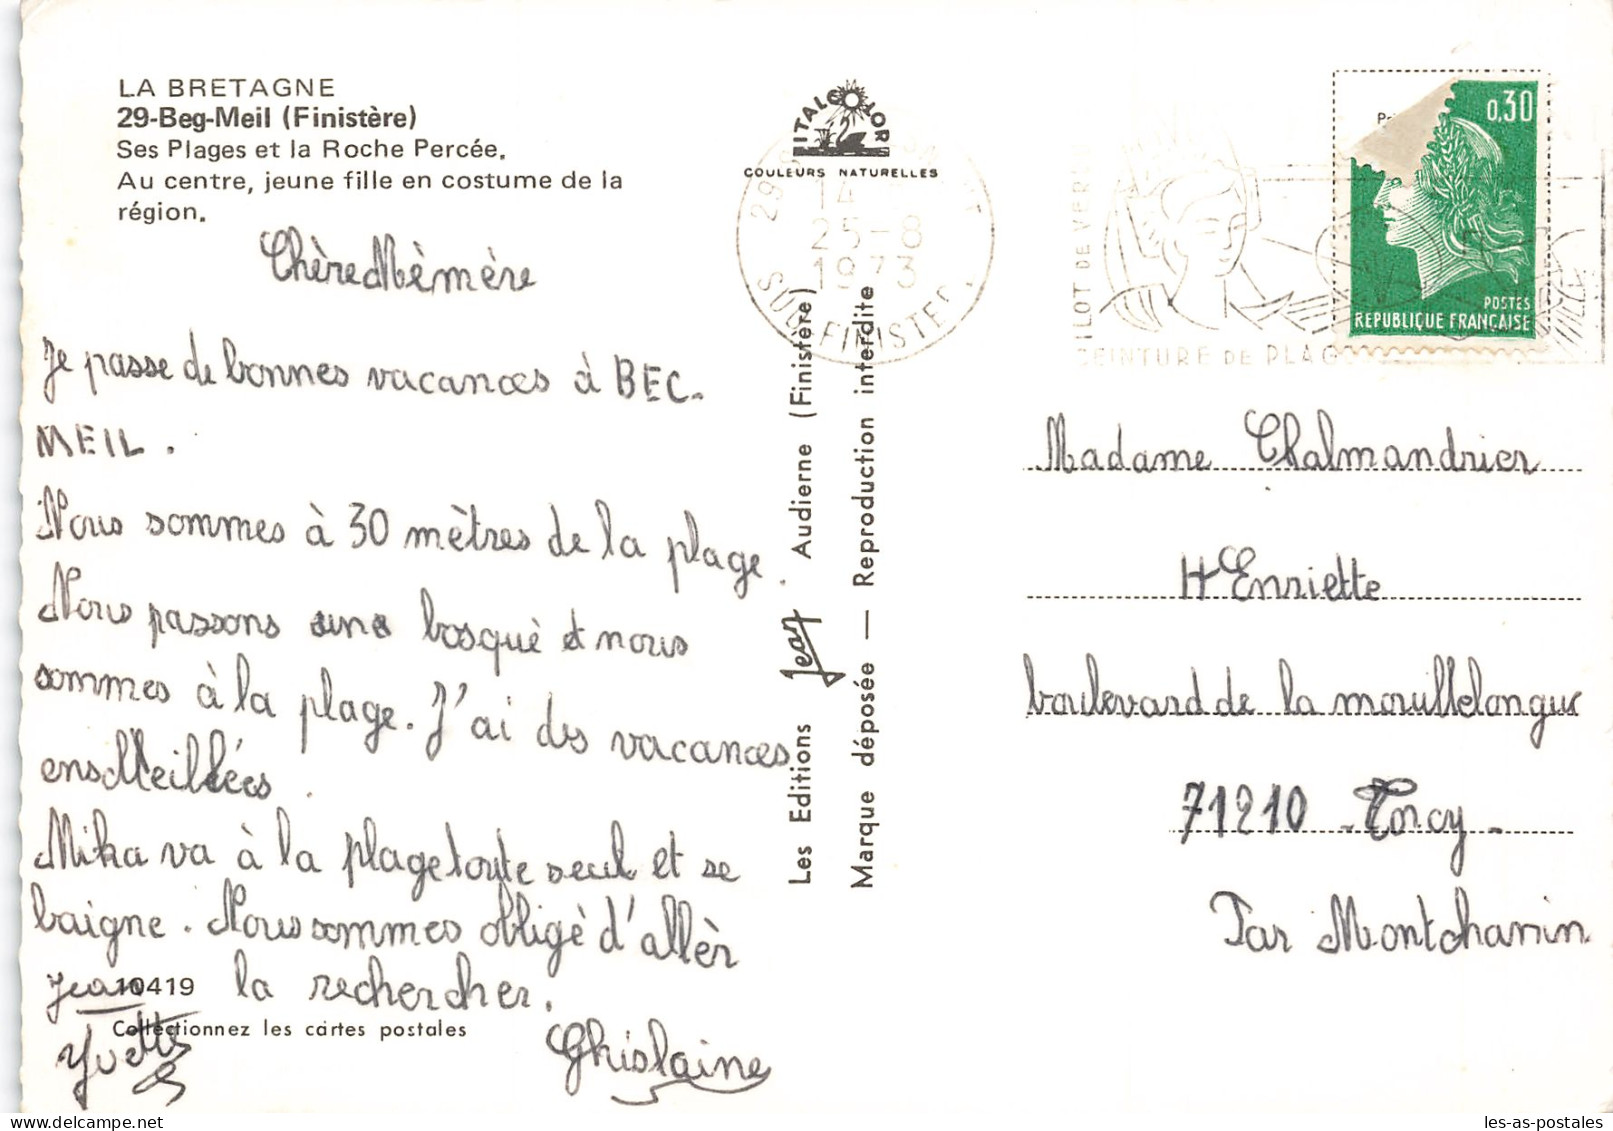 LA BRETAGNE
29-Beg-Meil (Finistère)
Ses Plages et la Roche Percée.
Au centre, jeune fille en costume de la
région.
Chère Mèmère
Je passe de bonnes vacances à BEC-
MEIL.
Nous sommes à 30 mètres de la plage.
Nous passons une bosquè et nous
sommes à la plage. J'ai des vacances
ensMeillées.
Mika va à la plage toute seul et se
baigne. Nous sommes obligè d'allèr
la rechercher.
Jean
Yvette
Ghislaine
10419
Collectionnez les cartes postales
ITALCOLOR
COULEURS NATURELLES
14
25-8
1973
SUD-FINISTER.
Les Editions Jean Audierne (Finistère)
Marque déposée — Reproduction interdite
ILOT DE VER
CEINTURE DE PLAG
0,30
POSTES
REPUBLIQUE FRANÇAISE
Madame Chalmandrier
HEnriette
boulevard de la mouillelongue
71210 - Torcy -
Par Montchanin
les-as-postales.com